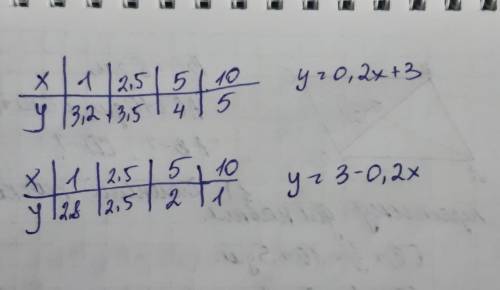 x | 1 | 2,5 | 5 | 10 y = 0,2x+3
y | 3,2 | 3,5 | 4 | 5
x | 1 | 2,5 | 5 | 10
y | 2,8 | 2,5 | 2 | 1 y = 3-0,2x